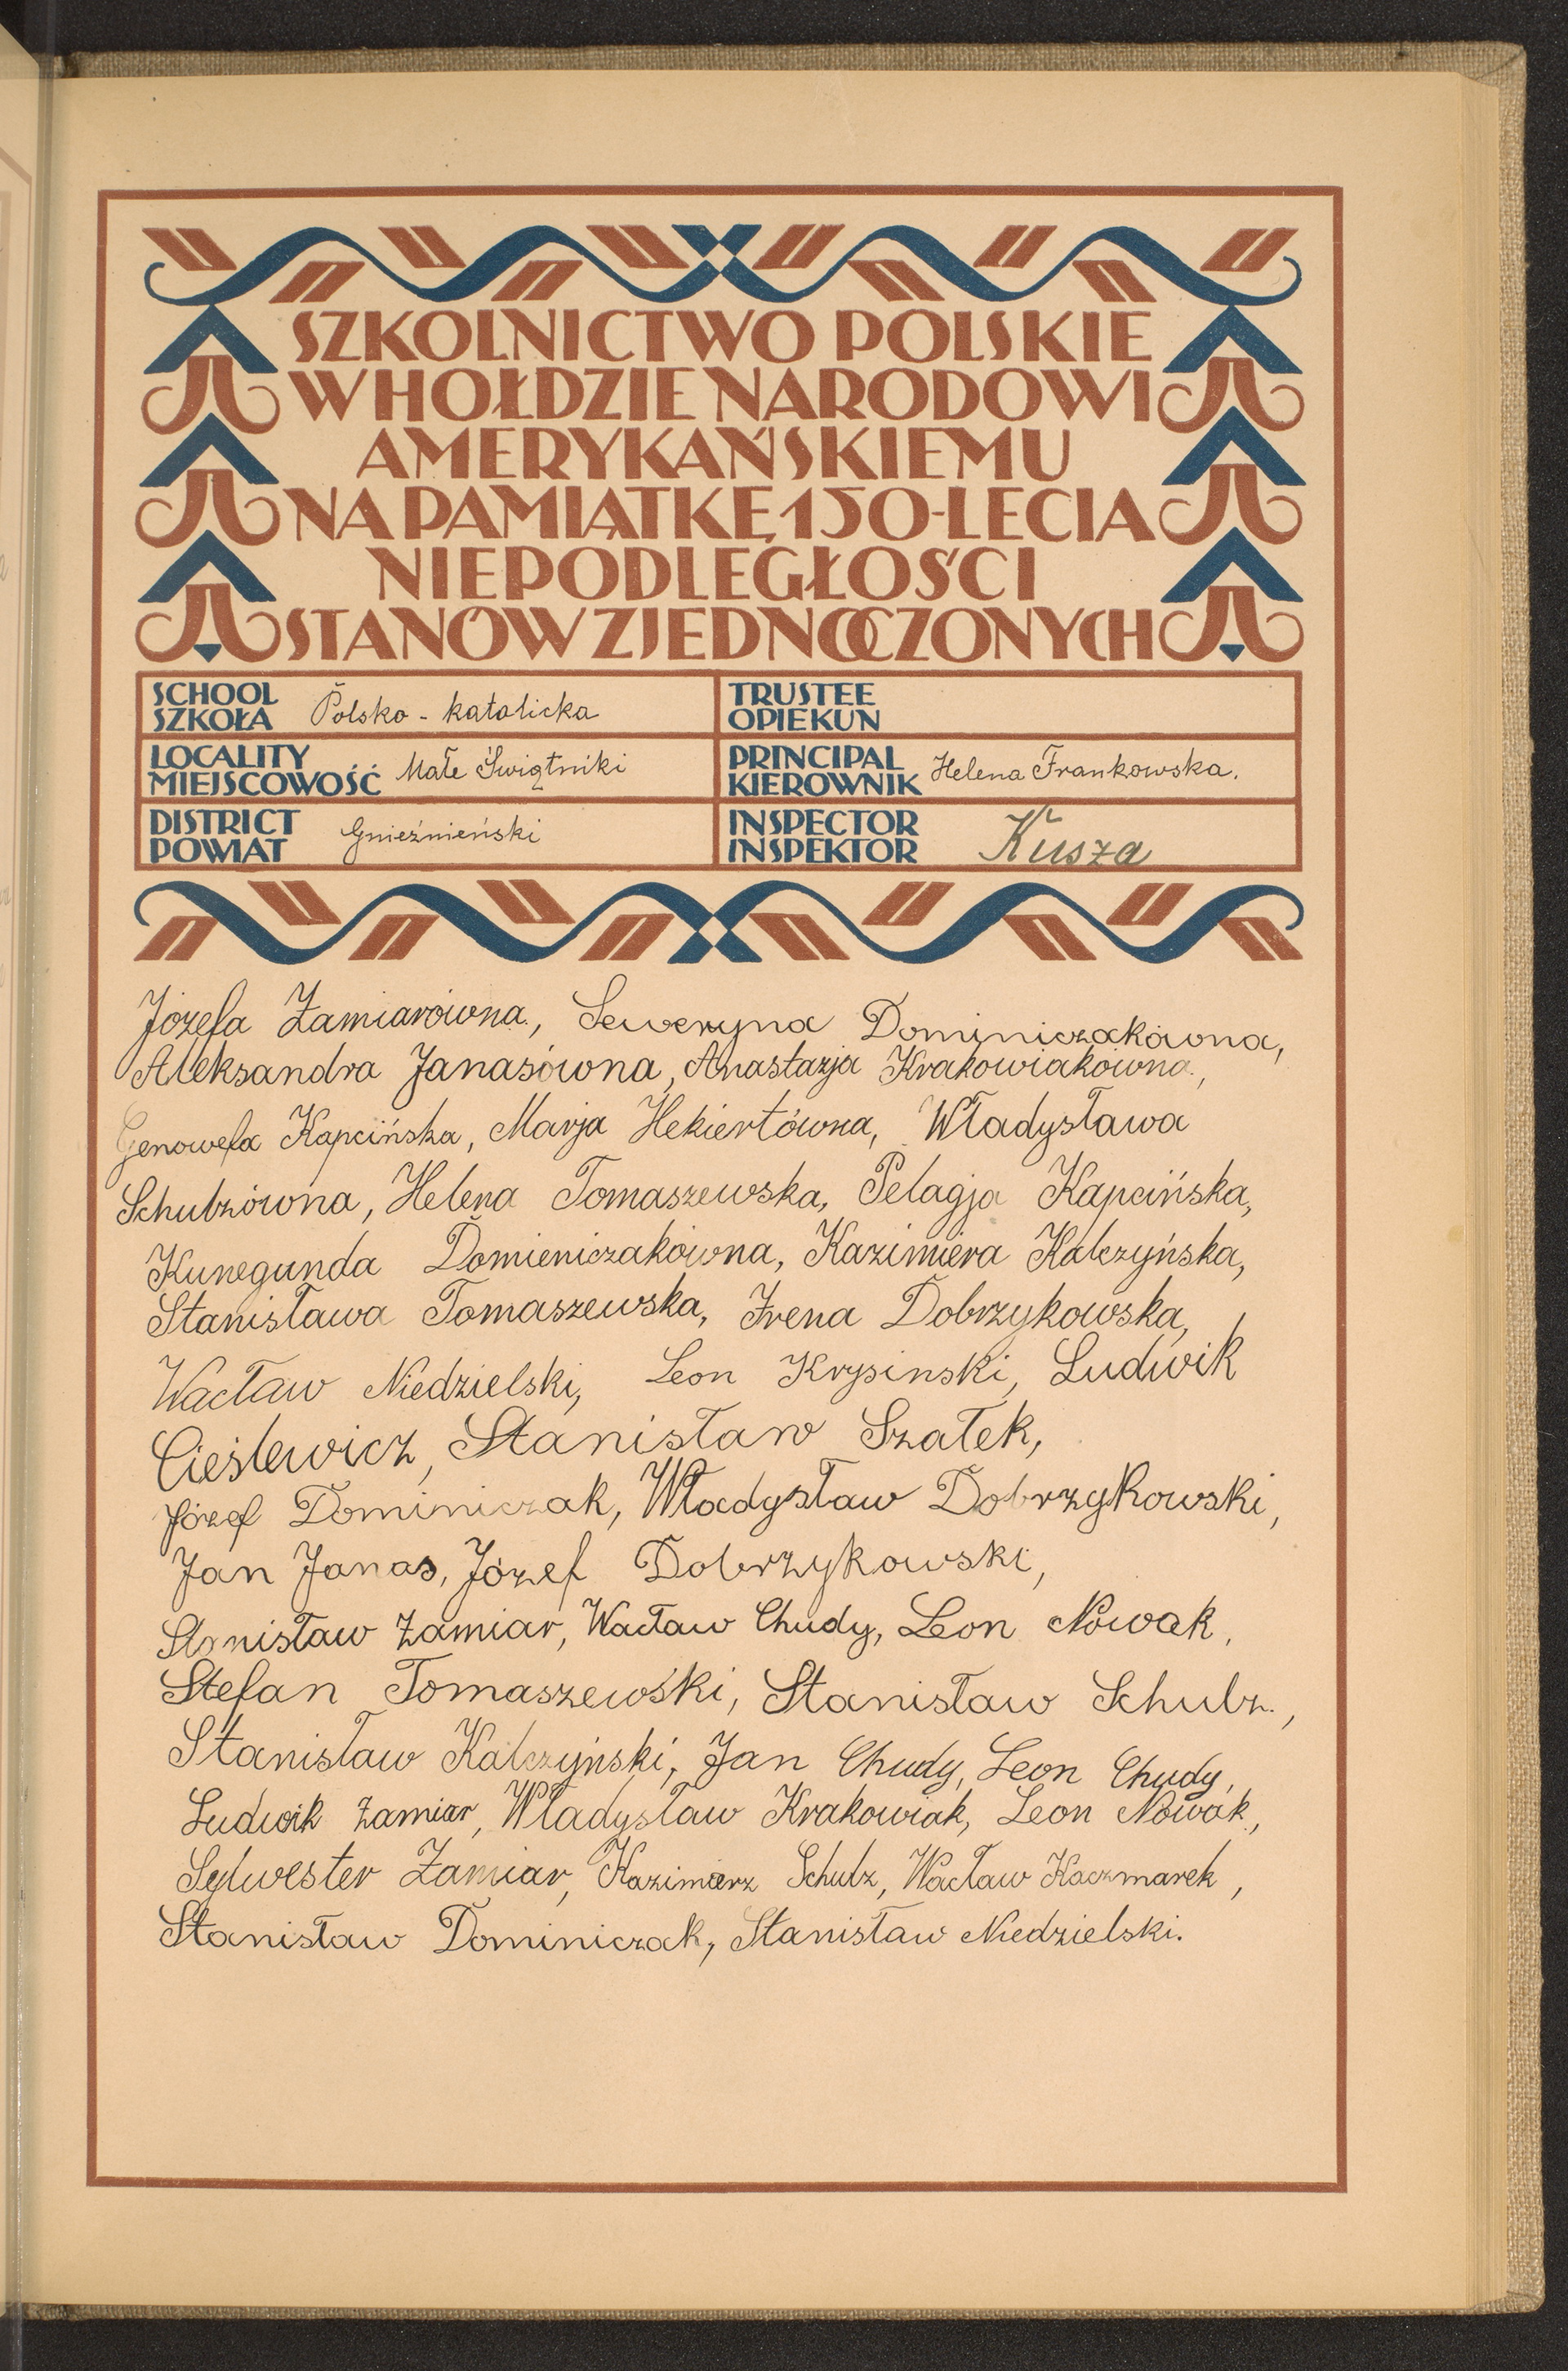 SZKOLNICTWO POLSKIE
W HOŁDZIE NARODOWI
AMERYKAŃSKIEMU
NA PAMIĄTKĘ 150-LECIA
NIEPODLEGŁOŚCI
STANÓW ZJEDNOCZONYCH
SCHOOL
SZKOŁA Polsko - katolicka
TRUSTEE
OPIEKUN
LOCALITY
MIEJSCOWOŚĆ Małe Świątniki
PRINCIPAL
KIEROWNIK Helena Frankowska.
DISTRICT
POWIAT Gnieźnieński
INSPECTOR
INSPEKTOR Kusza
Józefa Żamiarówna, Seweryna Dominiczakówna,
Aleksandra Janasówna, Anastazja Krakowiakówna,
Genowefa Kapcińska, Marja Hekiertówna, Władysława
Schulzówna, Helena Tomaszewska, Pelagja Kapcińska,
Kunegunda Domieniczakówna, Kazimiera Kalczyńska,
Stanisława Tomaszewska, Irena Dobrzykowska,
Wacław Niedzielski, Leon Krysinski, Ludwik
Cieślewicz, Stanisław Szałek,
Józef Dominiczak, Władysław Dobrzykowski,
Jan Janas, Józef Dobrzykowski,
Stanisław Żamiar, Wacław Chudy, Leon Nowak,
Stefan Tomaszewski, Stanisław Schulz.,
Stanisław Kalczyński, Jan Chudy, Leon Chudy,
Ludwik Żamiar, Władysław Krakowiak, Leon Nowak,
Sylwester Żamiar, Kazimierz Schulz, Wacław Kaczmarek,
Stanisław Dominiczak, Stanisław Niedzielski.